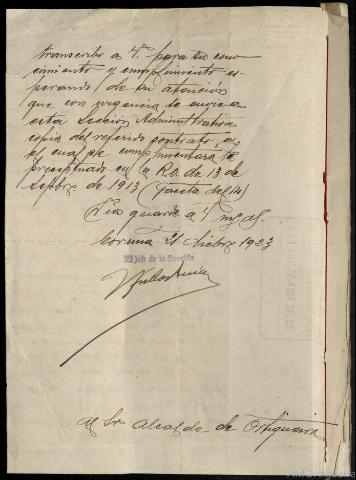 transcribo a V. para su cono-
cimiento y cumplimiento es-
perando de su atención
que con urgencia se envíe a
esta Sección Administrativa
copia del referido contrato, en
el cual se cumplimentará lo
preceptuado en la R.O. de 13 de
Sepbre. de 1913 (Gaceta del 14)
Dios guarde a V. m. as.
Coruña 21 Dicbre 1923
El Jefe de la Sección
Al Sr Alcalde de Ortigueira